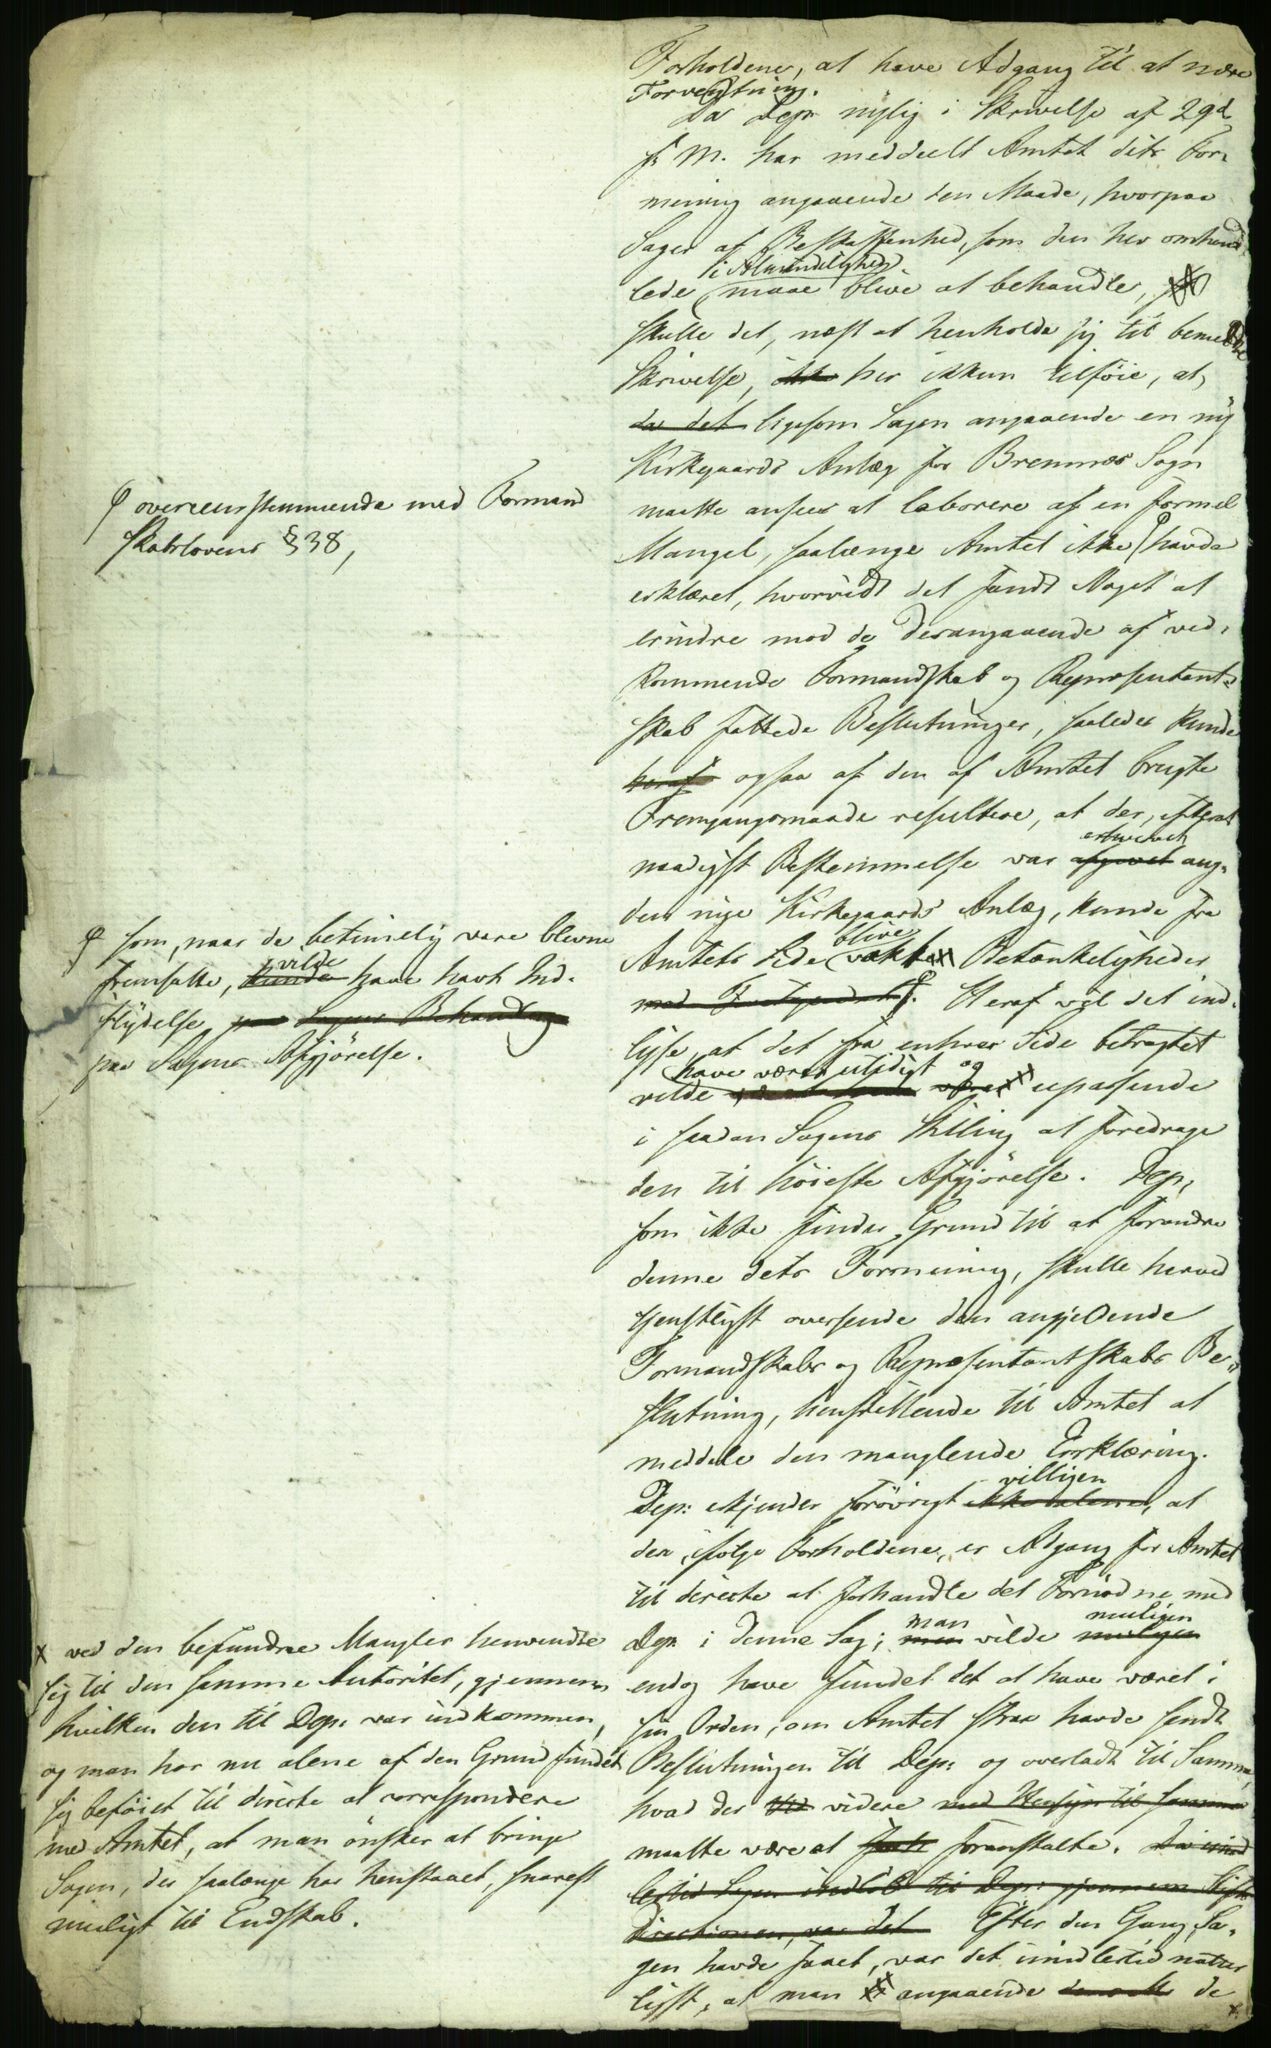 Forholdene, at have Adgang til at nære
Forventning.
Da Depr nylig i Skrivelse af 29d
f. M. har meddeelt Amtet dets For-
mening angaaende den Maade, hvorpaa
Sager af Beskaffenhed, som den her omhand-
i Almindelighed
lede maae blive at behandle,
skulle det, næst at henholde sig til bemeldte
Skrivelse, ikke her ikkun tilføie, at,
da det ligesom Sagen angaaende en ny
Kirkegaards Anlæg for Bremnes Sogn
maatte ansees at laborere af en formel
Mangel, saalænge Amtet ikke φ havde
erklæret, hvorvidt det fandt Noget at
erindre mod de desangaaende af ved-
kommende Formandskab og Repræsentant-
skab fattede Beslutninger, saaledes kunde
heraf ogsaa af den af Amtet brugte
Fremgangsmaade resultere, at der, efterat
naadigst Bestemmelse var afgivet ang.
erhvervet
den nye Kirkegaards Anlæg, kunde fra
blive
Amtets Side vakt Betænkeligheder
φ. Heraf vil det ind-
lyse, at det fra enhver Side betragtet
have været utidigt og
vilde upassende
i saadan Sagens Stilling at foredrage
den til høieste Afgjørelse. Dep,
som ikke finder Grund til at forandre
denne dets Formening, skulle herved
tjenstligst oversende den angjeldende
Formandskabs og Repræsentantskabs Be-
slutning, henstillende til Amtet at
meddele den manglende Erklæring.
villigen
Dep: erkjender forøvrigt ikke alene, at
der, ifølge Forholdene, er Adgang for Amtet
til directe at forhandle det Fornødne med
man muligen
Dep. i denne Sag; men vilde muligen
endog have fundet det at have været i
sin Orden, om Amtet strax havde sendt
Beslutningen til Dep: og overladt til Samme,
hvad der videre med Hensyn til samme
maatte være at foranstalte. Da imid
lertid Sagen indløb til Dep: gjennem Stifts
Directionen, var det Efter den Gang, Sa-
gen havde faaet, var det imidlertid natur
ligst, at man angaaende de
φ overeensstemmende med Formand
skabslovens § 38,
φ som, naar de betimelig vare blevne
vilde
fremsatte, kunde have havt Ind-
flydelse paa Sagens Behandling
paa Sagens Afgjørelse.
x ved den befundne Mangler henvendte
sig til den samme Autoritet, gjennem
hvilken den til Dep: var indkommen,
og man har nu alene af den Grund fundet
sig beføiet til directe at correspondere
med Amtet, at man ønsker at bringe
Sagen, der saalænge har henstaaet, snarest
muligt til Endskab.